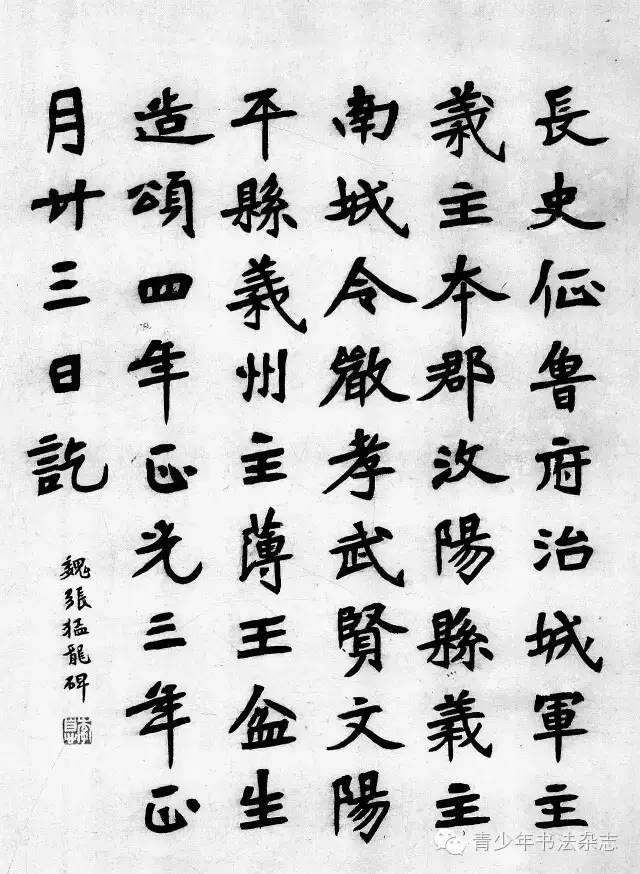 長史征魯府治城軍主
義主本郡汶陽縣義主
南城令嚴孝武賢文陽
平縣義州主薄王盆生
造頌四年正光三年正
月廿三日訖
魏張猛龍碑
青少年书法杂志